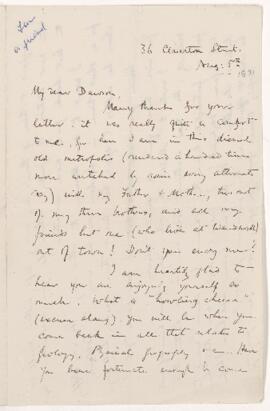 36 Claverton Street.
Aug: 5th
1871
My dear Dawson,
Many thanks for your
letter. it was really quite a comfort
to me, for here I am in this dismal
old metropolis (rendered a hundred times
more wretched by rain every alternate
day) with my Father & Mother, two out
of my three brothers, and all my
friends but one (who lives at
out of town! Don't you envy me?
I am heartily glad to
hear you are enjoying yourself so
much. What a "howling cheese"
(excuse slang). You will be when you
come back in all that relates to
geology, Physical geography &c. Have
you been fortunate enough to come